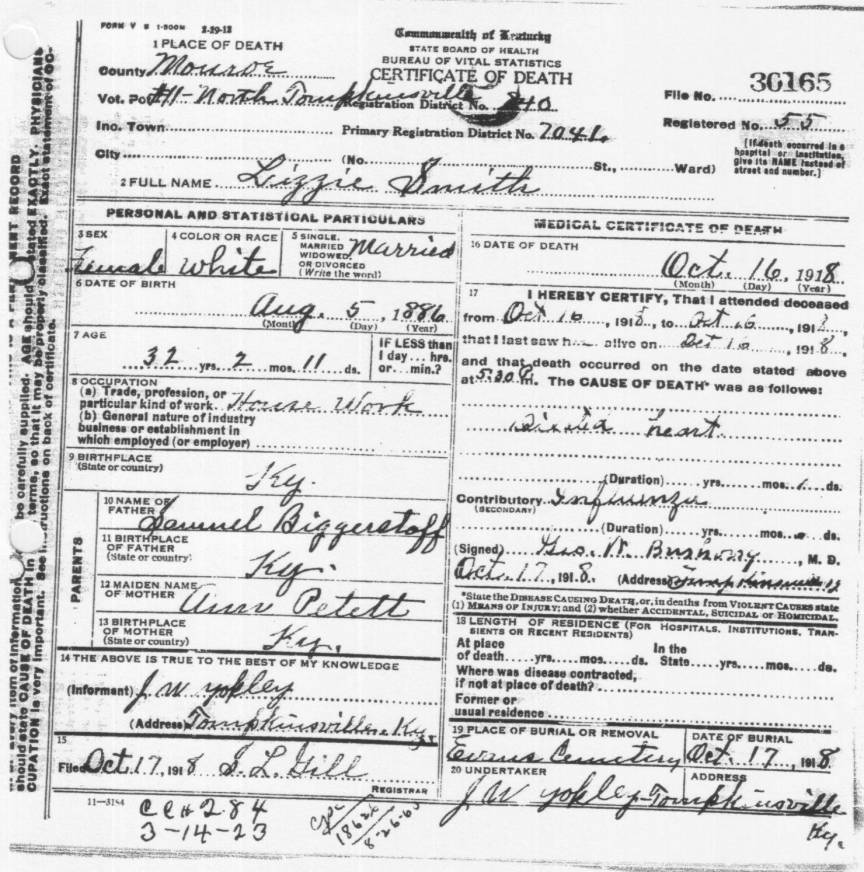 FORM V S 1-500M 2-29-12
Commonwealth of Kentucky
STATE BOARD OF HEALTH
BUREAU OF VITAL STATISTICS
CERTIFICATE OF DEATH
1 PLACE OF DEATH
County Monroe
File No. 36165
Vot. Pct #11-North Tompkinsville Registration District No. 840
Registered No. 55
Inc. Town Primary Registration District No. 7041
[If death occurred in a hospital or institution, give its NAME instead of street and number.]
City (No. St., Ward)
2 FULL NAME Lizzie Smith
PERSONAL AND STATISTICAL PARTICULARS
3 SEX Female
4 COLOR OR RACE White
5 SINGLE, MARRIED WIDOWED, OR DIVORCED (Write the word) Married
6 DATE OF BIRTH
Aug. 5, 1886
(Month) (Day) (Year)
7 AGE
32 yrs. 2 mos. 11 ds.
IF LESS than 1 day... hrs. or... min.?
8 OCCUPATION
(a) Trade, profession, or particular kind of work House Work
(b) General nature of industry business or establishment in which employed (or employer)
9 BIRTHPLACE (State or country)
Ky.
PARENTS
10 NAME OF FATHER Samuel Biggerstoff
11 BIRTHPLACE OF FATHER (State or country) Ky.
12 MAIDEN NAME OF MOTHER Ann Petett
13 BIRTHPLACE OF MOTHER (State or country) Ky.
14 THE ABOVE IS TRUE TO THE BEST OF MY KNOWLEDGE
(Informant) J W Yokley
(Address) Tompkinsville, Ky.
15
Filed Oct. 17, 1918 S. L. Gill
REGISTRAR
MEDICAL CERTIFICATE OF DEATH
16 DATE OF DEATH
Oct. 16, 1918
(Month) (Day) (Year)
17 I HEREBY CERTIFY, That I attended deceased
from Oct 16, 1918, to Oct 16, 1918,
that I last saw h alive on Oct 16, 1918,
and that death occurred on the date stated above
at 5:30 P m. The CAUSE OF DEATH* was as follows:
heart
(Duration) yrs. mos. 1 ds.
Contributory Influenza
(SECONDARY)
(Duration) yrs. mos. ds.
(Signed) Geo. W. M. D.
Oct. 17, 1918. (Address) Tompkinsville
*State the DISEASE CAUSING DEATH, or, in deaths from VIOLENT CAUSES state (1) MEANS OF INJURY; and (2) whether ACCIDENTAL, SUICIDAL or HOMICIDAL.
18 LENGTH OF RESIDENCE (FOR HOSPITALS, INSTITUTIONS, TRANSIENTS OR RECENT RESIDENTS)
At place of death yrs. mos. ds. In the State yrs. mos. ds.
Where was disease contracted, if not at place of death?
Former or usual residence
19 PLACE OF BURIAL OR REMOVAL Evans Cemetery
DATE OF BURIAL Oct. 17, 1918
20 UNDERTAKER J W Yokley
ADDRESS Tompkinsville Ky.
11-3184
CCH 284
3-14-23
8-26-60